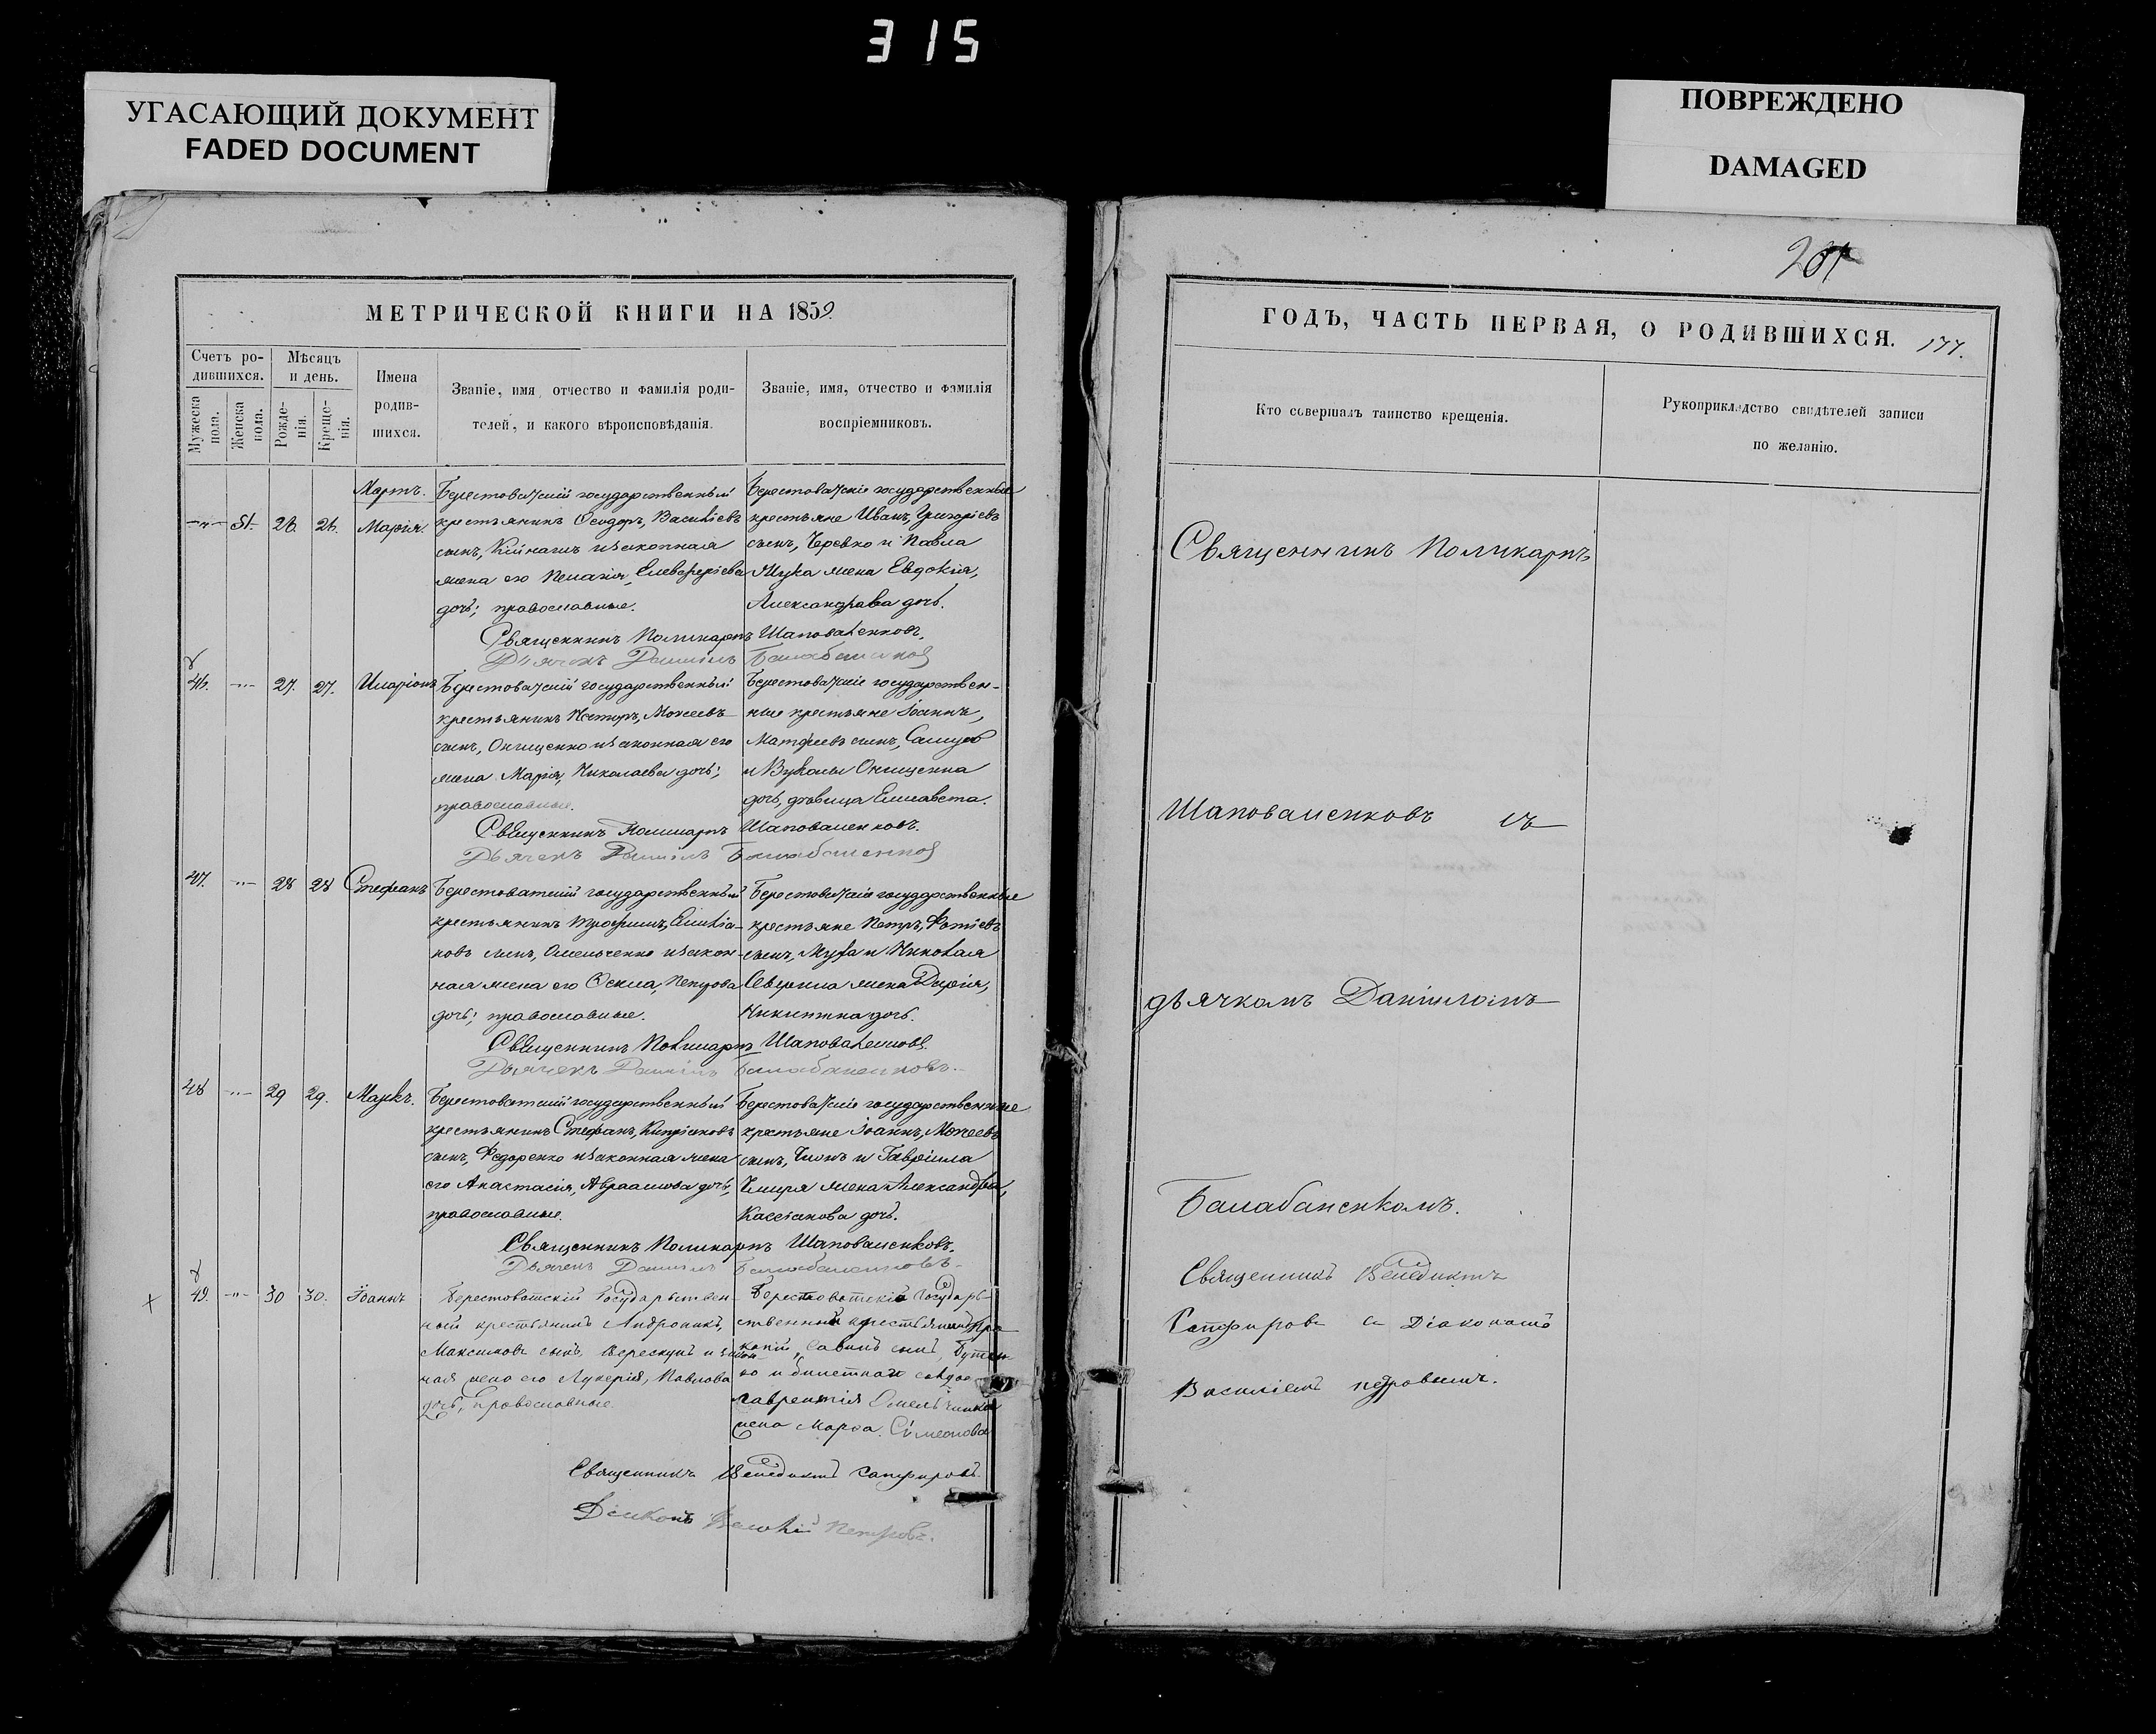 315
УГАСАЮЩИЙ ДОКУМЕНТ
FADED DOCUMENT
ПОВРЕЖДЕНО
DAMAGED
МЕТРИЧЕСКОЙ КНИГИ НА 1859.
Счетъ ро-
дившихся.
Мѣсяцъ
и день.
Мужеска
пола.
Женска
пола.
Рожде-
нія.
Креще-
нія.
Имена
родив-
шихся.
Званіе, имя, отчество и фамилія роди-
телей, и какого вѣроисповѣданія.
Званіе, имя, отчество и фамилія
воспріемниковъ.
Мартъ.
51. 26. 26. Марія.
Берестоватскій государственный
крестьянинъ Ѳеодоръ, Василіевъ
сынъ, и законная
жена его Пелагія, Елевферіева
дочь; православные.
Берестоватскіе государственные
крестьяне Иванъ, Григоріевъ
сынъ, Черевко и Павла
Жука жена Евдокія,
Александрова дочь.
Священникъ Поликарпъ Шаповаленковъ.
Дьячекъ Даніилъ Балабаненковъ
46. 27. 27. Иларіонъ
Берестоватскій государственный
крестьянинъ Несторъ, Моисеевъ
сынъ, Онищенко и законная его
жена Марія, Николаева дочь;
православные.
Берестоватскіе государствен-
ные крестьяне Іоаннъ,
Матфеевъ сынъ,
и Вуколы Онищенка
дочь, дѣвица Елисавета.
Священникъ Поликарпъ Шаповаленковъ.
Дьячекъ Даніилъ Балабаненковъ
47. 28 28 Стефанъ
Берестоватскій государственный
крестьянинъ Трофимъ, Емиліа-
новъ сынъ, Омельченко и закон-
ная жена его Ѳекла, Петрова
дочь; православные.
Берестоватскіе государственные
крестьяне Петръ, Фотіевъ
сынъ, Муха и Николая
Северина жена Дарія,
Никитина дочь.
Священникъ Поликарпъ Шаповаленковъ.
Дьячекъ Даніилъ Балабаненковъ.
48 29 29. Маркъ.
Берестоватскій государственный
крестьянинъ Стефанъ, Кипріановъ
сынъ, Федоренко и законная жена
его Анастасія, Авраамова дочь,
православные.
Берестоватскіе государственные
крестьяне Іоаннъ, Моисеевъ
сынъ, и Гавріила
жена Александра,
Кассіанова дочь.
Священникъ Поликарпъ Шаповаленковъ.
Дьячекъ Даніилъ Балабаненковъ.
49. 30 30. Іоаннъ
Берестоватскій Государствен-
ный крестьянинъ Андроникъ,
Максимовъ сынъ, Верескунъ и закон-
ная жена его Лукерія, Павлова
дочь, православные.
Берестоватскій Государ-
ственный крестьянинъ Про-
копій, Савинъ сынъ, Бутен-
ко и билетнаго
Лаврентія Омельченка
жена Марѳа Симеонова
Священникъ Венедиктъ Сапфировъ.
Діаконъ Василій Петровъ.
ГОДЪ, ЧАСТЬ ПЕРВАЯ, О РОДИВШИХСЯ.
177.
Кто совершалъ таинство крещенія.
Рукоприкладство свидѣтелей записи
по желанію.
Священникъ Поликарпъ
Шаповаленковъ съ
дьячкомъ Даніиломъ
Балабаненкомъ.
Священникъ Венедиктъ
Сапфировъ съ Діакономъ
Василіемъ Петровымъ.